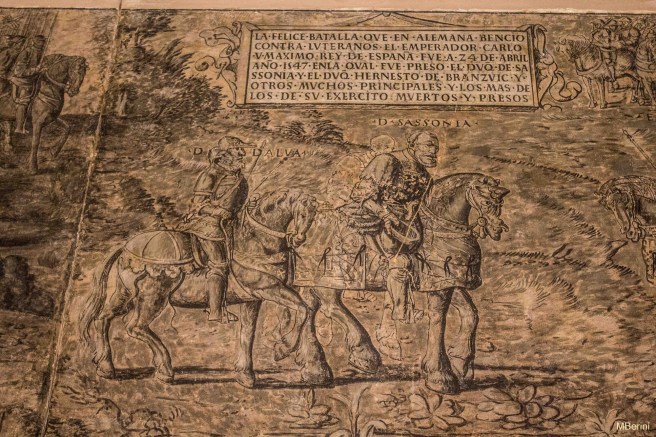 LA FELICE BATALLA QVE EN ALEMANA BENCIO
CONTRA LVTERANOS EL EMPERADOR CARLO
V MAXIMO REY DE ESPAÑA FVE A 24 DE ABRIL
AÑO 1547 EN LA QVAL FVE PRESO EL DVQ DE SA
SSONIA Y EL DVQ HERNESTO DE BRANZVIC Y
OTROS MVCHOS PRINCIPALES Y LOS MAS DE
LOS DE SV EXERCITO MVERTOS Y PRESOS
D SASSONIA
D DALVA
MBerini